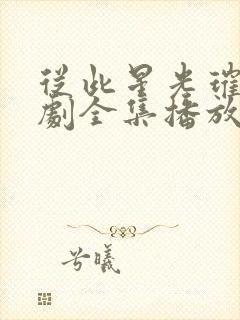 從此星光璀
劇全集播放
兮曦